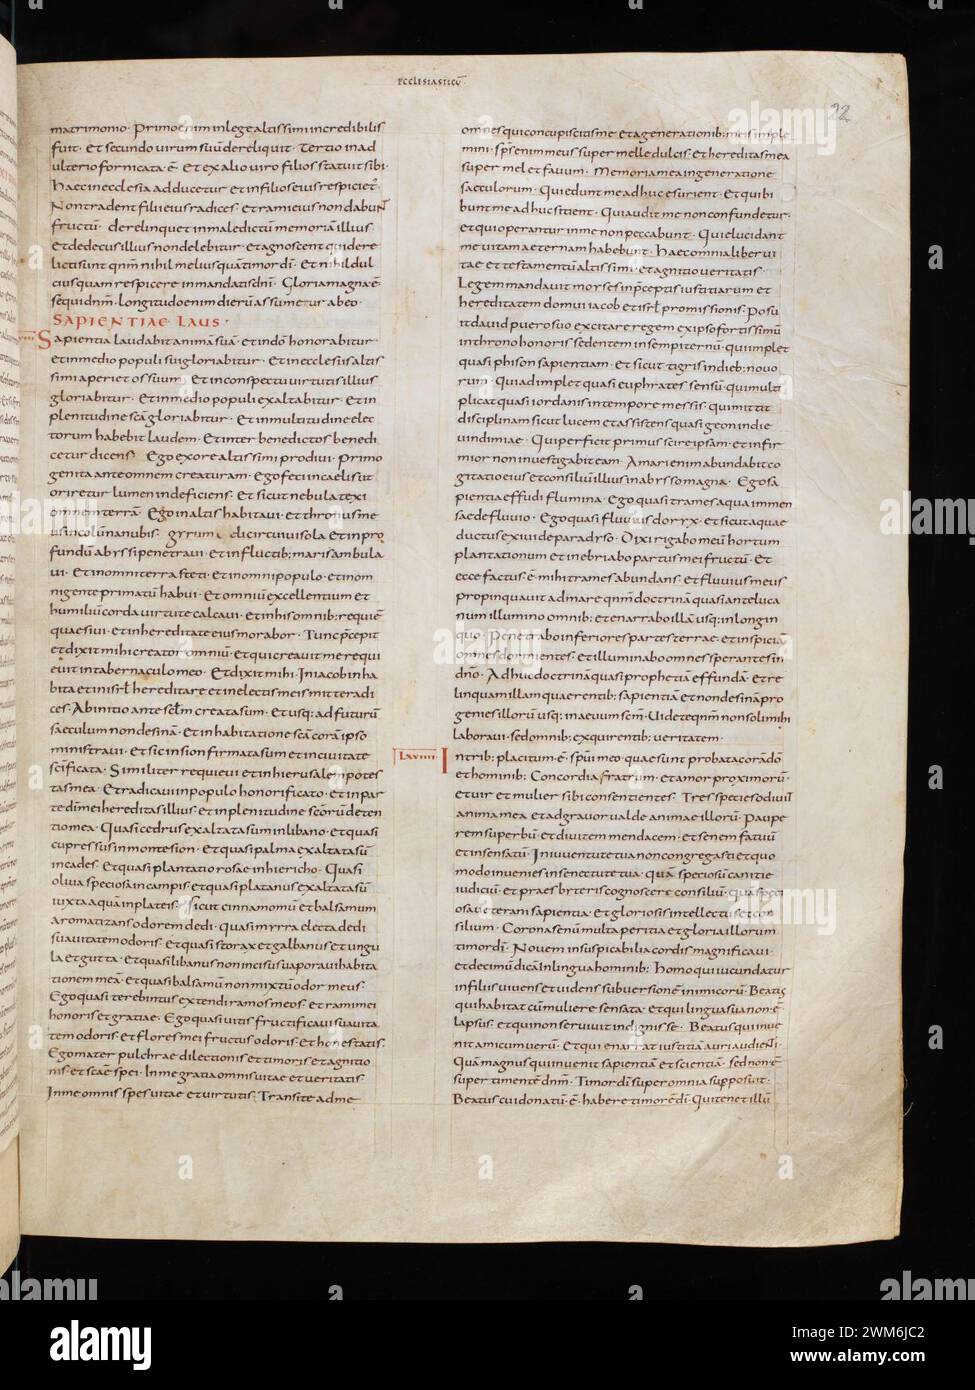 ECCLESIASTICŪ
22
matrimonio · Primo enim in lege altissimi incredibilis
fuit · Et secundo virum suū dereliquit · Tertio in ad
ulterio fornicata ē · Et ex alio viro filios statuit sibi ·
Haec in ecclesia adducetur et in filios eius respiciet ·
Non tradent filii eius radices · et rami eius non dabuNT
fructū · derelinquet in maledictū memoriā illius
Et dedecus illius non delebitur · Et agnoscent qui dere
licti sunt qnm̄ nihil melius quā timor dī · Et nihil dul
cius quam respicere in mandatis dnī · Gloria magna ē
sequi dnm̄ · longitudo enim dierū assumetur ab eo ·
SAPIENTIAE LAUS ·
Sapientia laudabit animā suā · et in dō honorabitur ·
et in medio populi sui gloriabitur · Et in ecclesiis altis
simi aperiet os suum · Et in conspectu virtutis illius
gloriabitur · Et in medio populi exaltabitur · Et in
plenitudine scā gloriabitur · Et in multitudine elec
torum habebit laudem · Et inter benedictos benedi
cetur dicens · Ego ex ore altissimi prodivi · Primo
genita ante omnem creaturam · Ego feci in caelis ut
oriretur lumen indeficiens · Et sicut nebula texi
omnem terrā · Ego in altis habitavi · et thronus me
us in colūna nubis · gyrum caeli circuivi sola · Et in pro
fundū abyssi penetravi · et in fluctib; maris ambula
vi · Et in omni terra steti · Et in omni populo · et in om
ni gente primatū habui · Et omniū excellentium et
humiliū corda virtute calcavi · et in his omnib; requiē
quaesivi · et in hereditate eius morabor · Tunc p̄cepit
et dixit mihi creator omniū · Et qui creavit me requi
evit in tabernaculo meo · Et dixit mihi · In iacob inha
bita et in isrl̄ hereditare et in electis meis mitte radi
ces · Ab initio ante sclm̄ creata sum · Et usq; ad futurū
saeculum non desinā · Et in habitatione scā corā ipso
ministravi · Et sic in sion firmata sum et in civitate
scificata · Similiter requievi et in hierusalem potes
tas mea · Et radicavi in populo honorificato · et in par
te dī mei hereditas illius · et in plenitudine scōrū deten
tio mea · Quasi cedrus exaltata sum in libano · et quasi
cupressus in monte sion · Et quasi palma exaltata sū
in cades · Et quasi plantatio rosae in hiericho · Quasi
oliva speciosa in campis · et quasi platanus exaltata sū
iuxta aquā in plateis · Sicut cinnamomū et balsamum
aromatizans odorem dedi · Quasi myrra electa dedi
suavitatem odoris · Et quasi storax et galbanus et ungu
la et gutta · Et quasi libanus non incisus vaporavi habita
tionem meā · Et quasi balsamū non mixtū odor meus ·
Ego quasi terebintus extendi ramos meos · et rami mei
honoris et gratiae · Ego quasi vitis fructificavi suavita
tem odoris · et flores mei fructus odoris · et honestatis ·
Ego mater pulchrae dilectionis et timoris · et agnitio
nis · et scae spei · In me gratia omnis vitae et veritatis ·
In me omnis spes vitae et virtutis · Transite ad me
omnes qui concupiscitis me · et a generationib; meis imple
mini · sps̄ enim meus super melle dulcis · et hereditas mea
super mel et favum · Memoria mea in generatione
saeculorum · Qui edunt me adhuc esurient · Et qui bi
bunt me adhuc sitient · Qui audit me non confundetur ·
et qui operantur in me non peccabunt · Qui elucidant
me vitam aeternam habebunt · Haec omnia liber vi
tae et testamentū altissimi · et agnitio veritatis ·
Legem mandavit moyses in p̄ceptis iustitiarum et
hereditatem domui iacob et isrl̄ promissionis · Posu
it david puero suo excitare regem ex ipso fortissimū
in throno honoris sedentem in sempiternū · qui implet
quasi phison sapientiam · Et sicut tigris in dieb; novo
rum · Qui adimplet quasi euphrates sensū · Qui multi
plicat quasi iordanis in tempore messis · qui mittit
disciplinam sicut lucem et assistens quasi geon in die
vindimiae · Qui perficit primus scire ipsam · et infir
mior non investigabit eam · A mari enim abundabit co
gitatio eius et consiliū illius in abysso magna · Ego sa
pientia effudi flumina · Ego quasi trames aqua immen
sae de fluvio · Ego quasi fluvius doryx · et sicut aquae
ductus exivi de paradyso · Dixi rigabo meū hortum
plantationum et inebriabo partus mei fructū · Et
ecce factus ē mihi trames abundans · et fluvius meus
propinquavit ad mare qnm̄ doctrinā quasi anteluca
num illumino omnib; et enarrabo illā usq; in longin
quo · Penetrabo inferiores partes terrae · et inspiciā
omnes dormientes · et illuminabo omnes sperantes in
dnō · Adhuc doctrinā quasi prophetiā effundā · Et re
linquam illam quaerentib; sapientiā et non desinā pro
genies illorū usq; in aevum scm̄ · Videte qnm̄ non soli mihi
laboravi · sed omnib; exquirentib; veritatem ·
LXVIIII In trib; placitum ē · spūi meo · quae sunt probata corā dō
et hominib; Concordia fratrum · et amor proximorū ·
et vir et mulier sibi consentientes · Tres species odiviT
anima mea · et adgravor valde animae illorū · Paupe
rem superbū · et divitem mendacem · et senem fatuū
et insensatū · In iuventute tua non congregasti et quo
modo invenies in senectute tua · Quā speciosū canitie
iudiciū · et praesbyteris cognoscere consiliū · Quā speci
osa veterani sapientia · et gloriosis intellectus et con
silium · Corona senū multa peritia · et gloria illorum
timor dī · Novem insuspicabilia cordis magnificavi ·
et decimū dicā in lingua hominib; Homo qui iucundatur
in filiis vivens et videns subversionē inimicorū · Beatus
qui habitat cū muliere sensata · et qui lingua sua non ē
lapsus · et qui non servivit indignis se · Beatus qui inve
nit amicum verū · Et qui enarrat iustitiā auri audienti ·
Quā magnus qui invenit sapientiā et scientiā · sed non ē
super timentē dnm̄ · Timor dī super omnia supposuit ·
Beatus cui donatū ē · habere timorē dī · Qui tenet illū
alamy
Image ID: 2WM6JC2
www.alamy.com